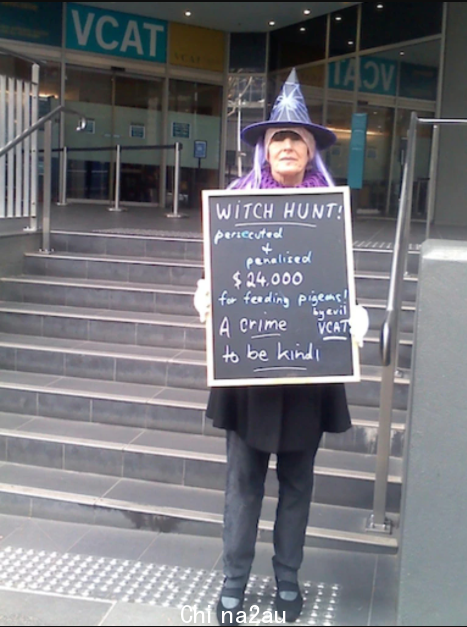 VCAT
VCAT
VCAT
WITCH HUNT!
persecuted
&
penalised
$24.000
for feeding pigeons!
by evil
A crime VCAT
to be kind!
Chi na2au